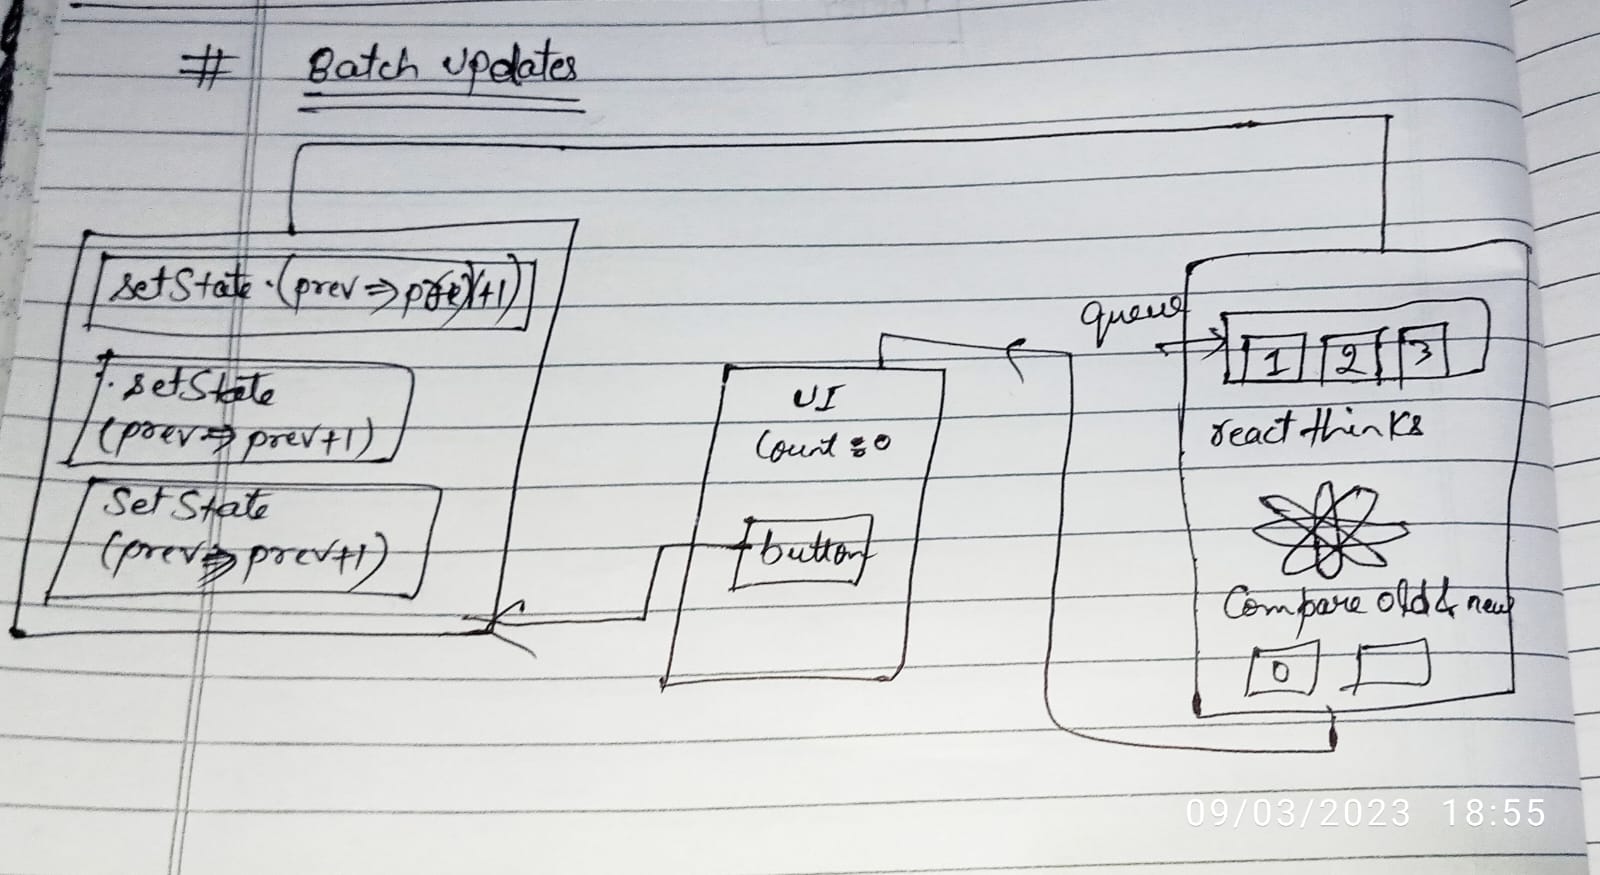 # Batch updates
setState.(prev => prev+1)
setState
(prev => prev+1)
Set State
(prev => prev+1)
UI
Count = 0
button
queue
1 2 3
react thinks
Compare old & new
0
09/03/2023 18:55